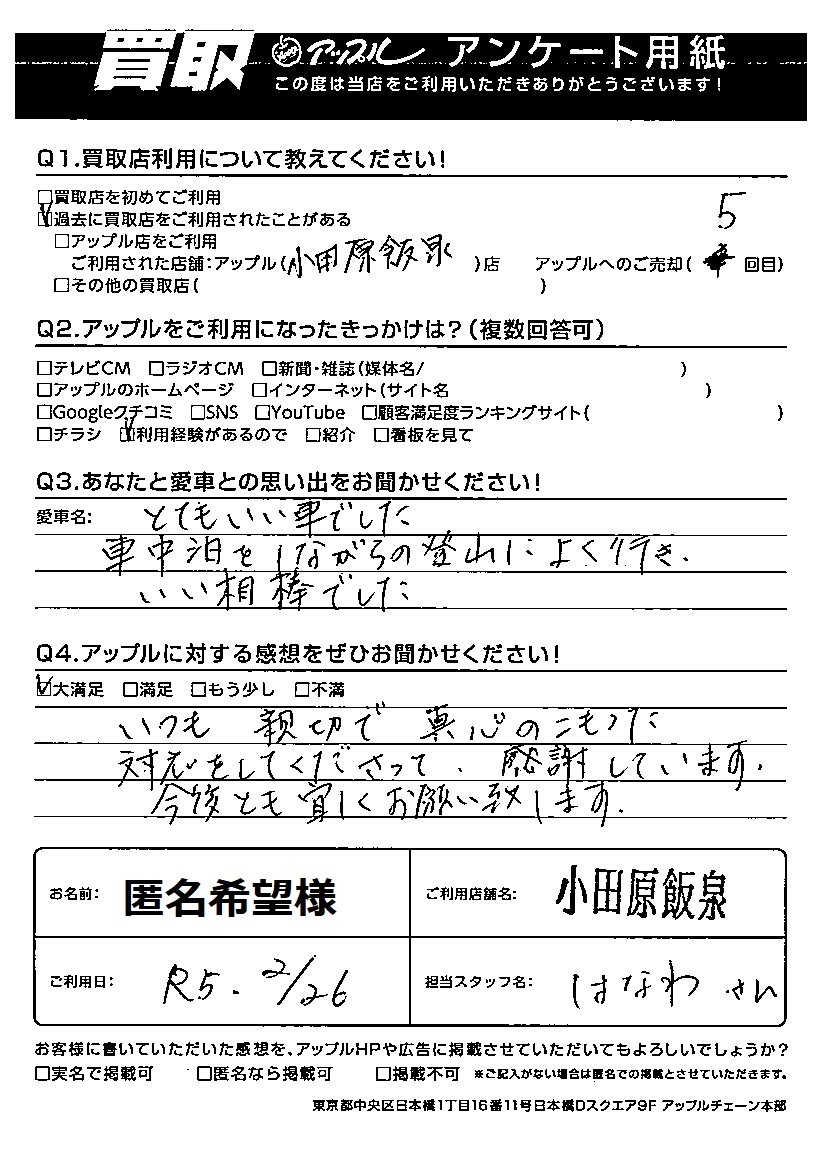 買取 アップル アンケート用紙
この度は当店をご利用いただきありがとうございます!
Q1.買取店利用について教えてください!
□買取店を初めてご利用
☑過去に買取店をご利用されたことがある
5
□アップル店をご利用
ご利用された店舗:アップル(小田原飯泉)店 アップルへのご売却( 回目)
□その他の買取店( )
Q2.アップルをご利用になったきっかけは?(複数回答可)
□テレビCM □ラジオCM □新聞・雑誌(媒体名/ )
□アップルのホームページ □インターネット(サイト名 )
□Googleクチコミ □SNS □YouTube □顧客満足度ランキングサイト( )
□チラシ ☑利用経験があるので □紹介 □看板を見て
Q3.あなたと愛車との思い出をお聞かせください!
愛車名: とてもいい車でした
車中泊をしながらの登山によく行き、
いい相棒でした
Q4.アップルに対する感想をぜひお聞かせください!
☑大満足 □満足 □もう少し □不満
いつも 親切で 真心のこもった
対応をしてくださって、感謝しています。
今後とも宜しくお願い致します。
お名前: 匿名希望様 ご利用店舗名: 小田原飯泉
ご利用日: R5. 2/26 担当スタッフ名: はなわ さん
お客様に書いていただいた感想を、アップルHPや広告に掲載させていただいてもよろしいでしょうか?
□実名で掲載可 □匿名なら掲載可 □掲載不可 ※ご記入がない場合は匿名での掲載とさせていただきます。
東京都中央区日本橋1丁目16番11号日本橋Dスクエア9F アップルチェーン本部